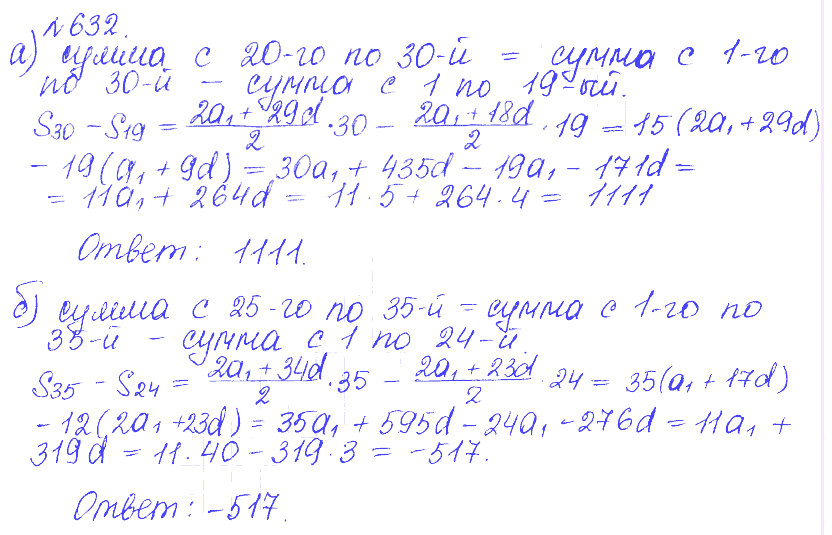 №632.
а) сумма с 20-го по 30-й = сумма с 1-го
по 30-й – сумма с 1 по 19-ый.
S₃₀ – S₁₉ = (2a₁ + 29d)/2 · 30 – (2a₁ + 18d)/2 · 19 = 15(2a₁ + 29d)
– 19(a₁ + 9d) = 30a₁ + 435d – 19a₁ – 171d =
= 11a₁ + 264d = 11 · 5 + 264 · 4 = 1111
Ответ: 1111.
б) сумма с 25-го по 35-й = сумма с 1-го по
35-й – сумма с 1 по 24-й.
S₃₅ – S₂₄ = (2a₁ + 34d)/2 · 35 – (2a₁ + 23d)/2 · 24 = 35(a₁ + 17d)
– 12(2a₁ + 23d) = 35a₁ + 595d – 24a₁ – 276d = 11a₁ +
319d = 11 · 40 – 319 · 3 = –517.
Ответ: –517.